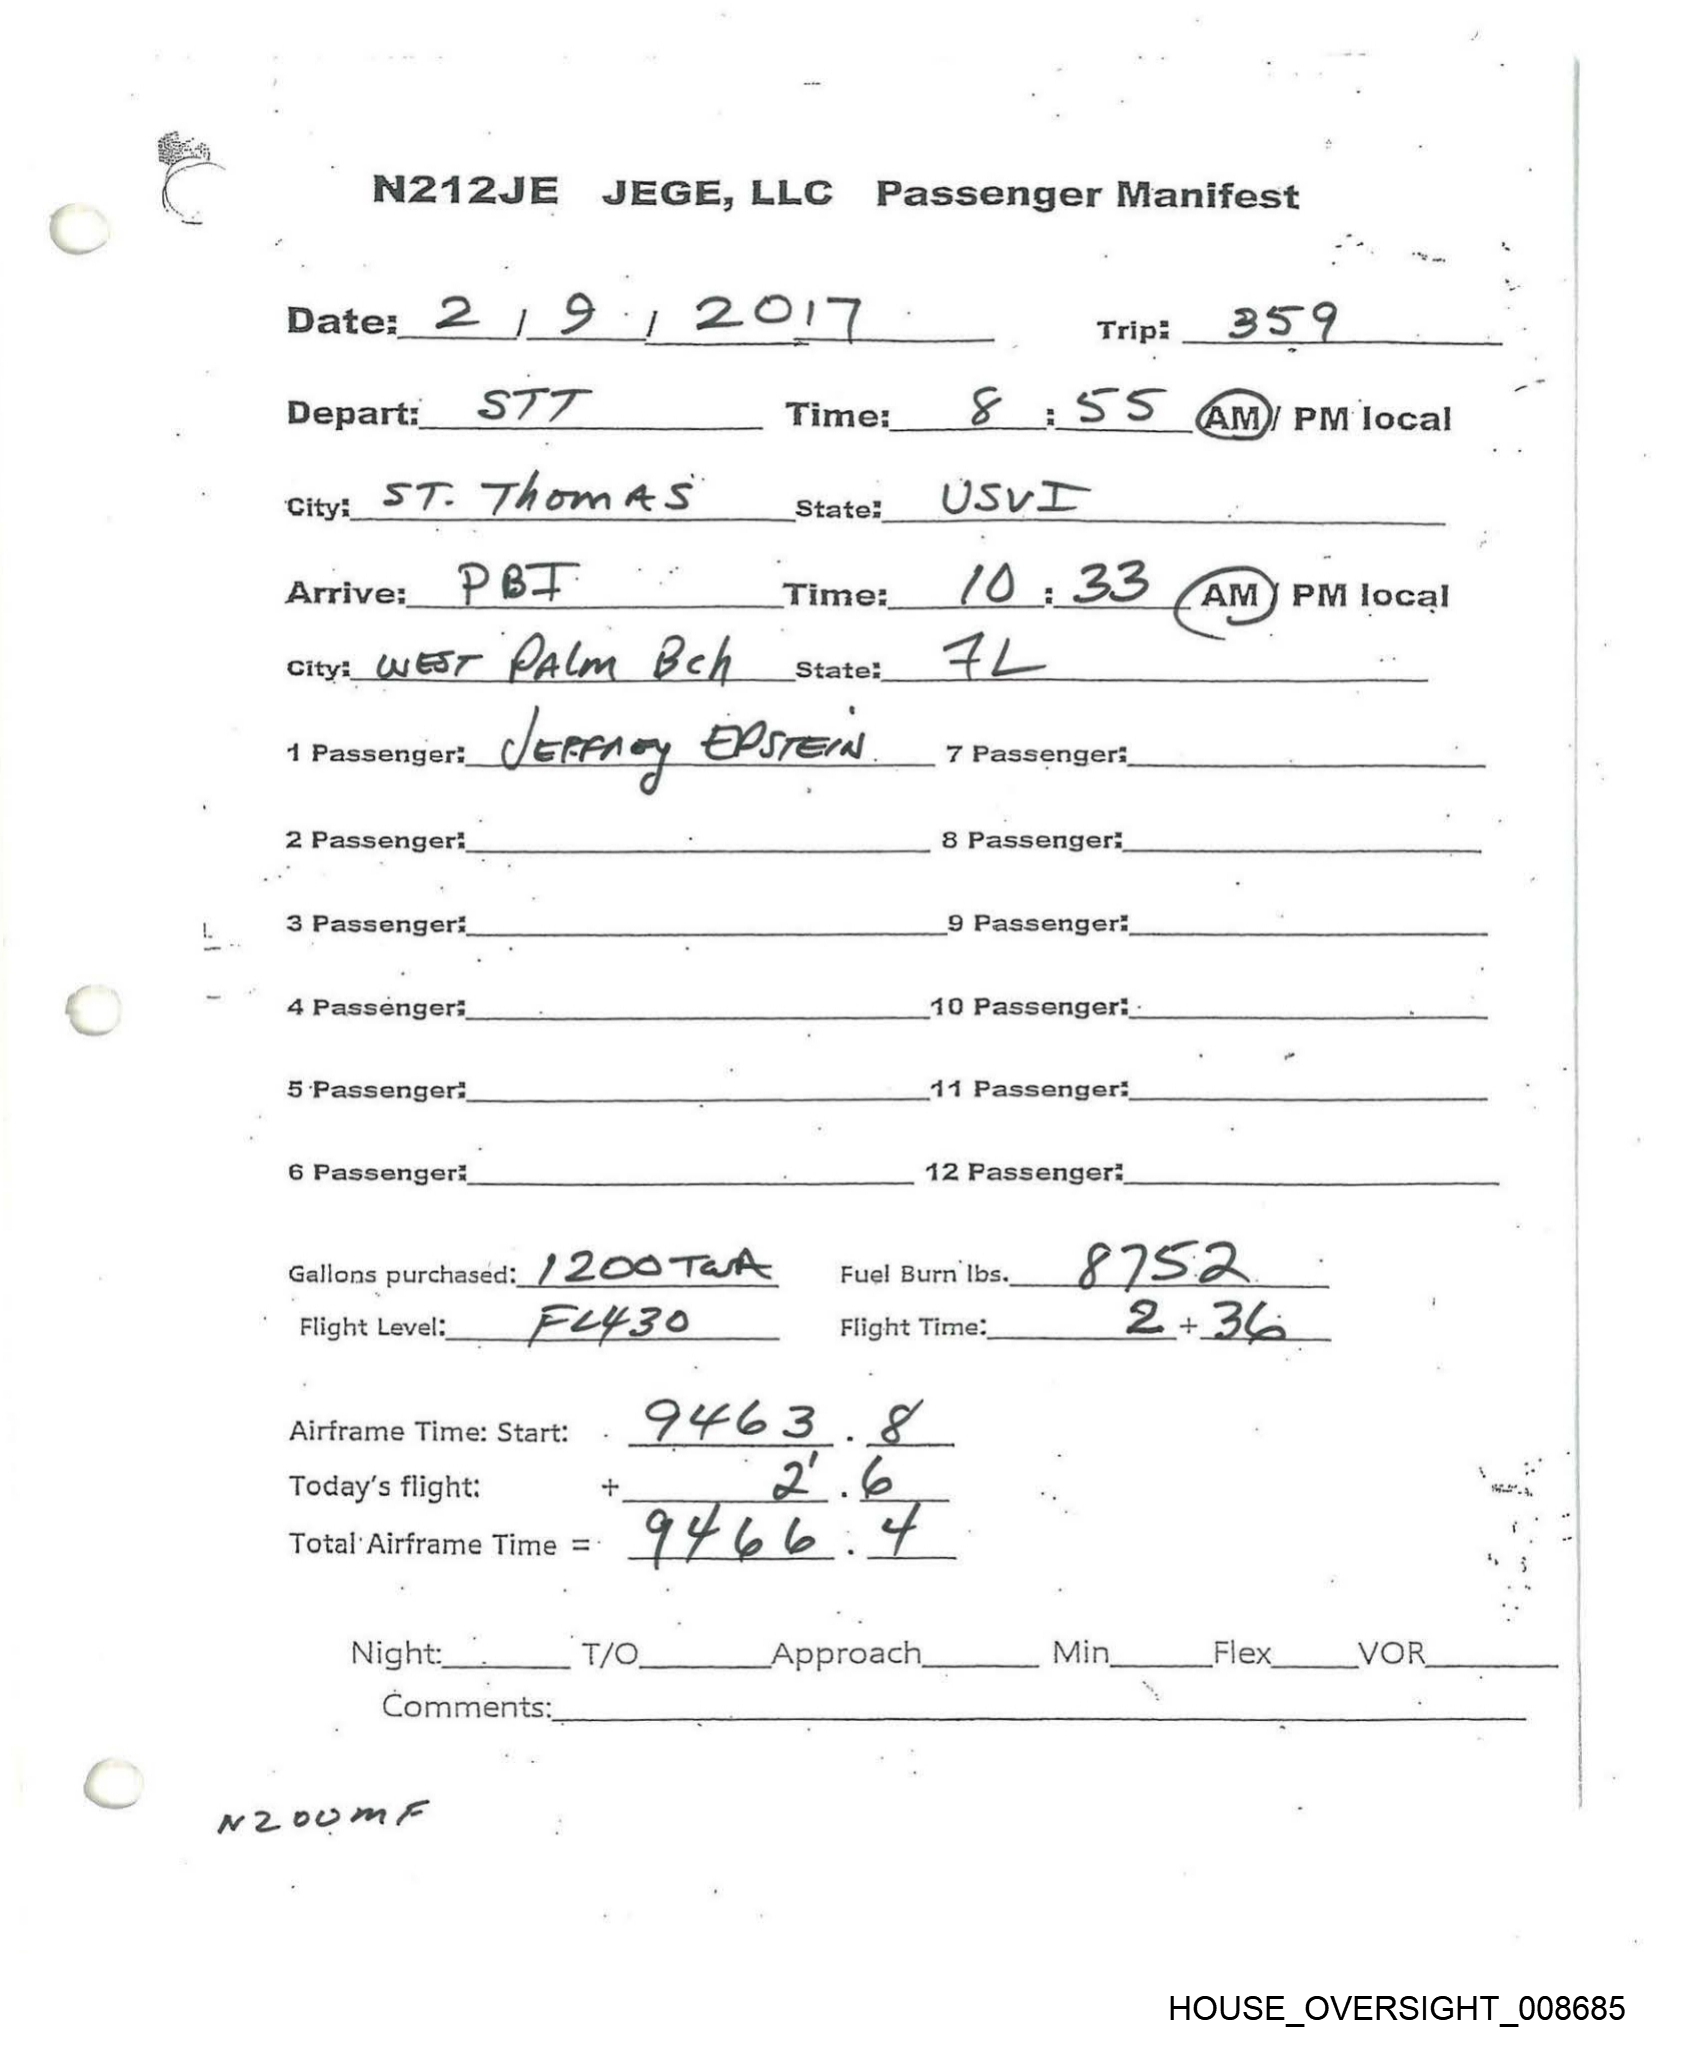 N212JE JEGE, LLC Passenger Manifest
Date: 2 / 9 / 2017 Trip: 359
Depart: STT Time: 8 : 55 AM / PM local
City: ST. ThomAS State: USVI
Arrive: PBI Time: 10 : 33 AM / PM local
City: WEST PAlm Bch State: FL
1 Passenger: JEFFREy EPSTEIN 7 Passenger:
2 Passenger: 8 Passenger:
3 Passenger: 9 Passenger:
4 Passenger: 10 Passenger:
5 Passenger: 11 Passenger:
6 Passenger: 12 Passenger:
Gallons purchased: 1200 Fuel Burn lbs. 8752
Flight Level: FL430 Flight Time: 2 + 36
Airframe Time: Start: 9463 . 8
Today's flight: + 2 . 6
Total Airframe Time = 9466 . 4
Night: T/O Approach Min Flex VOR
Comments:
N200MF
HOUSE_OVERSIGHT_008685